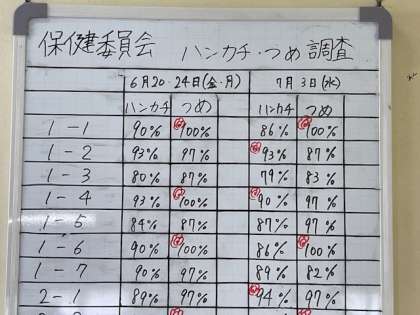 保健委員会 ハンカチ・つめ 調査
6月20・24日(金・月) 7月3日(水)
ハンカチ つめ ハンカチ つめ
1-1 90% 100% 86% 100%
1-2 93% 97% 93% 87%
1-3 80% 87% 79% 83%
1-4 93% 100% 90% 97%
1-5 84% 87% 87% 97%
1-6 90% 100% 86% 100%
1-7 90% 97% 89% 82%
2-1 89% 97% 94% 97%